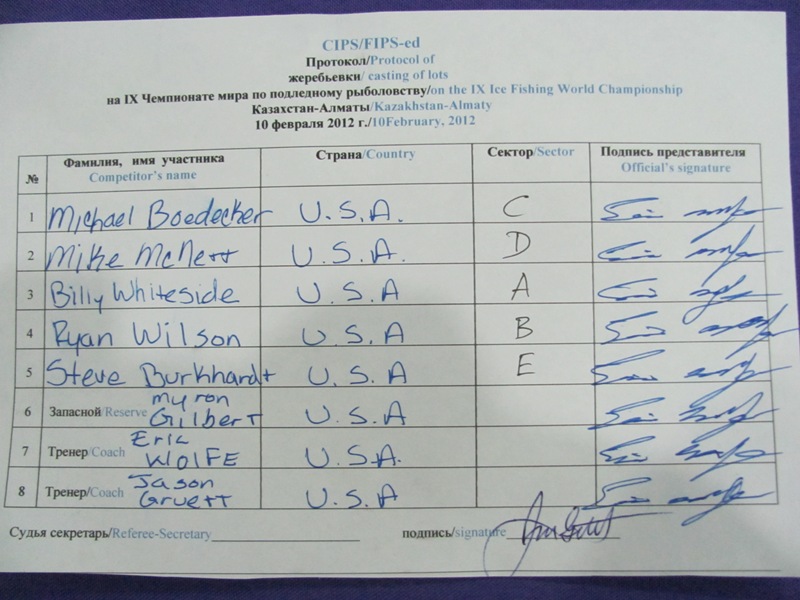 CIPS/FIPS-ed
Протокол/Protocol of
жеребьевки/ casting of lots
на IX Чемпионате мира по подледному рыболовству/on the IX Ice Fishing World Championship
Казахстан-Алматы/Kazakhstan-Almaty
10 февраля 2012 г./10February, 2012
№ Фамилия, имя участника Страна/Country Сектор/Sector Подпись представителя
Competitor's name Official's signature
1 Michael Boedecker U.S.A. C
2 Mike McNett U.S.A. D
3 Billy Whiteside U.S.A A
4 Ryan Wilson U.S.A B
5 Steve Burkhardt U.S.A E
6 Запасной Reserve Myron Gilbert U.S.A
7 Тренер/Coach Eric Wolfe U.S.A.
8 Тренер/Coach Jason Gruett U.S.A
Судья секретарь/Referee-Secretary подпись/signature